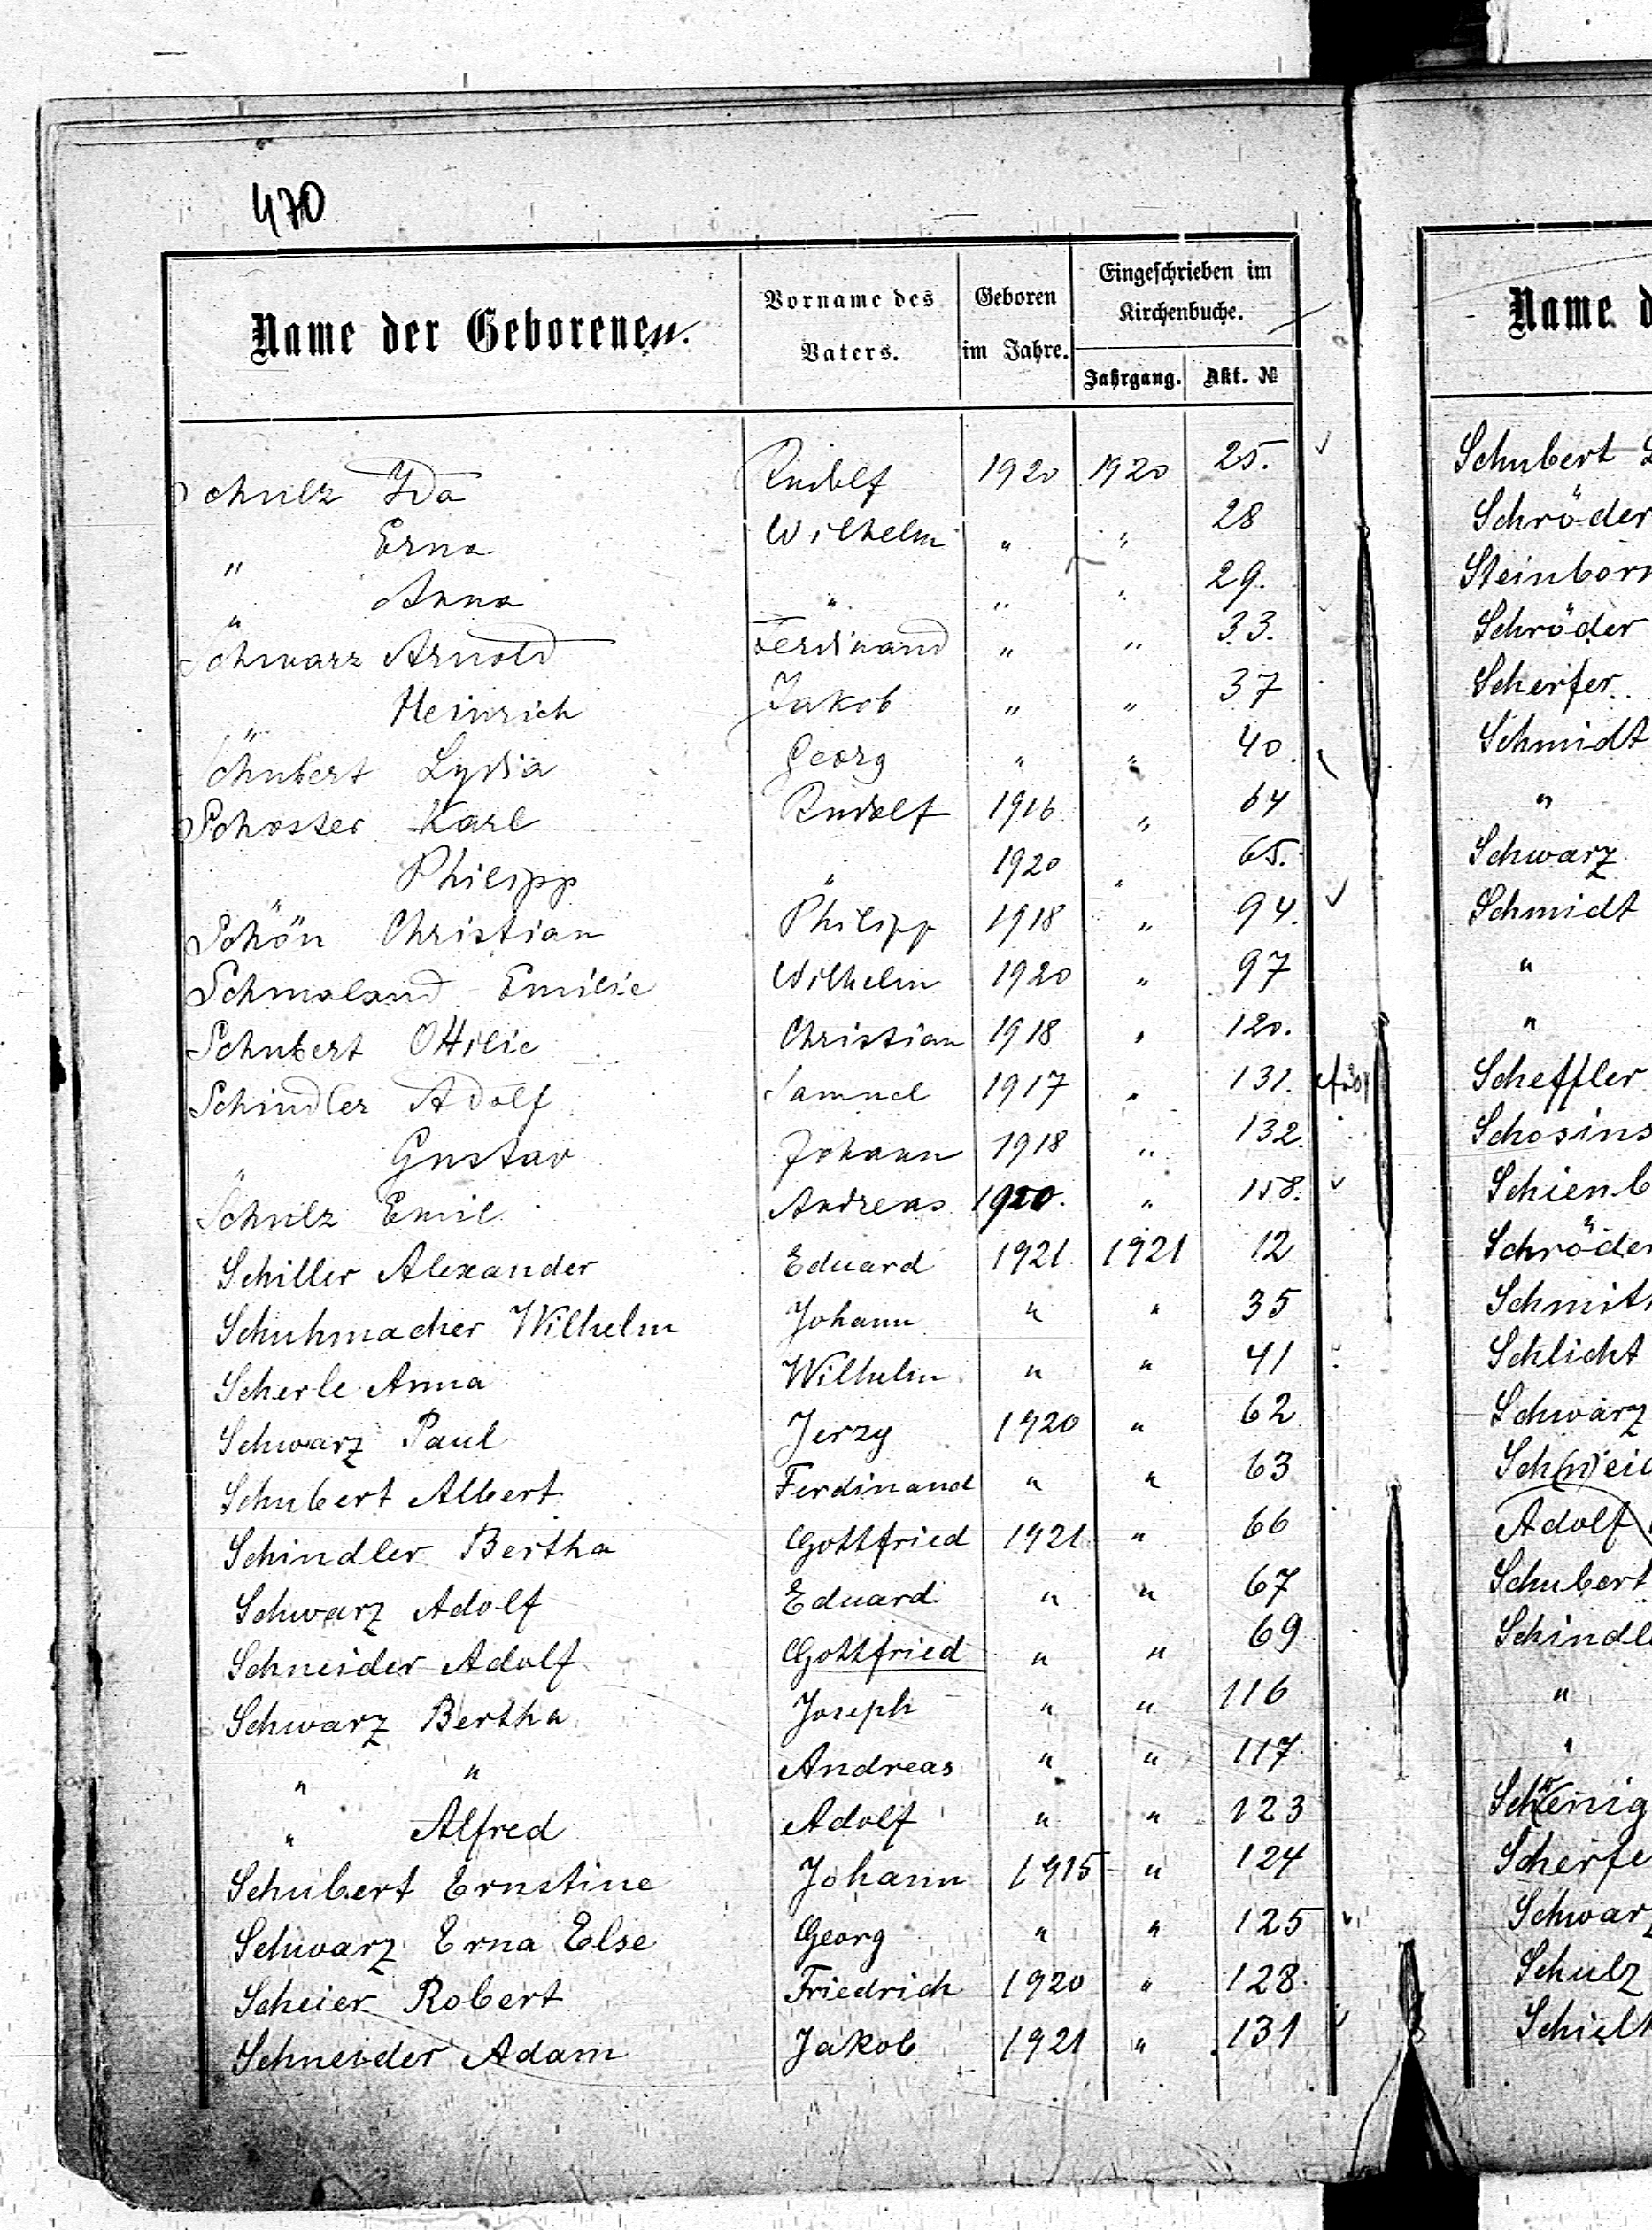 470
Name der Geborenen.
Vorname des Vaters.
Geboren im Jahre.
Eingeschrieben im Kirchenbuche.
Jahrgang. Akt. №
Schulz Ida Rudolf 1920 1920 25.
" Erna Wilhelm " " 28
" Anna " " " 29.
Schwarz Arnold Ferdinand " " 33.
" Heinrich Jakob " " 37
Schubert Lydia Georg " " 40.
Schoster Karl Rudolf 1916 " 64
" Philipp " 1920 " 65.
Schön Christian Philipp 1918 " 94.
Schmaland Emilie Wilhelm 1920 " 97
Schubert Ottilie Christian 1918 " 120.
Schindler Adolf Samuel 1917 " 131.
" Gustav Johann 1918 " 132.
Schulz Emil Andreas 1920. " 158.
Schiller Alexander Eduard 1921 1921 12
Schuhmacher Wilhelm Johann " " 35
Scherle Anna Wilhelm " " 41
Schwarz Paul Jerzy 1920 " 62
Schubert Albert Ferdinand " " 63
Schindler Bertha Gottfried 1921 " 66
Schwarz Adolf Eduard " " 67
Schneider Adolf Gottfried " " 69
Schwarz Bertha Joseph " " 116
" " Andreas " " 117
" Alfred Adolf " " 123
Schubert Ernstine Johann 1915 " 124
Schwarz Erna Else Georg " " 125
Scheier Robert Friedrich 1920 " 128
Schneider Adam Jakob 1921 " 131
Name d
Schubert
Schröder
Steinborn
Schröder
Scherfer
Schmidt
"
Schwarz
Schmidt
"
"
Scheffler
Schosins
Schienb
Schröder
Schmit
Schlicht
Schwarz
Sch(n)eid
Adolf
Schubert
Schindl
"
"
Scherfe
Schwarz
Schulz